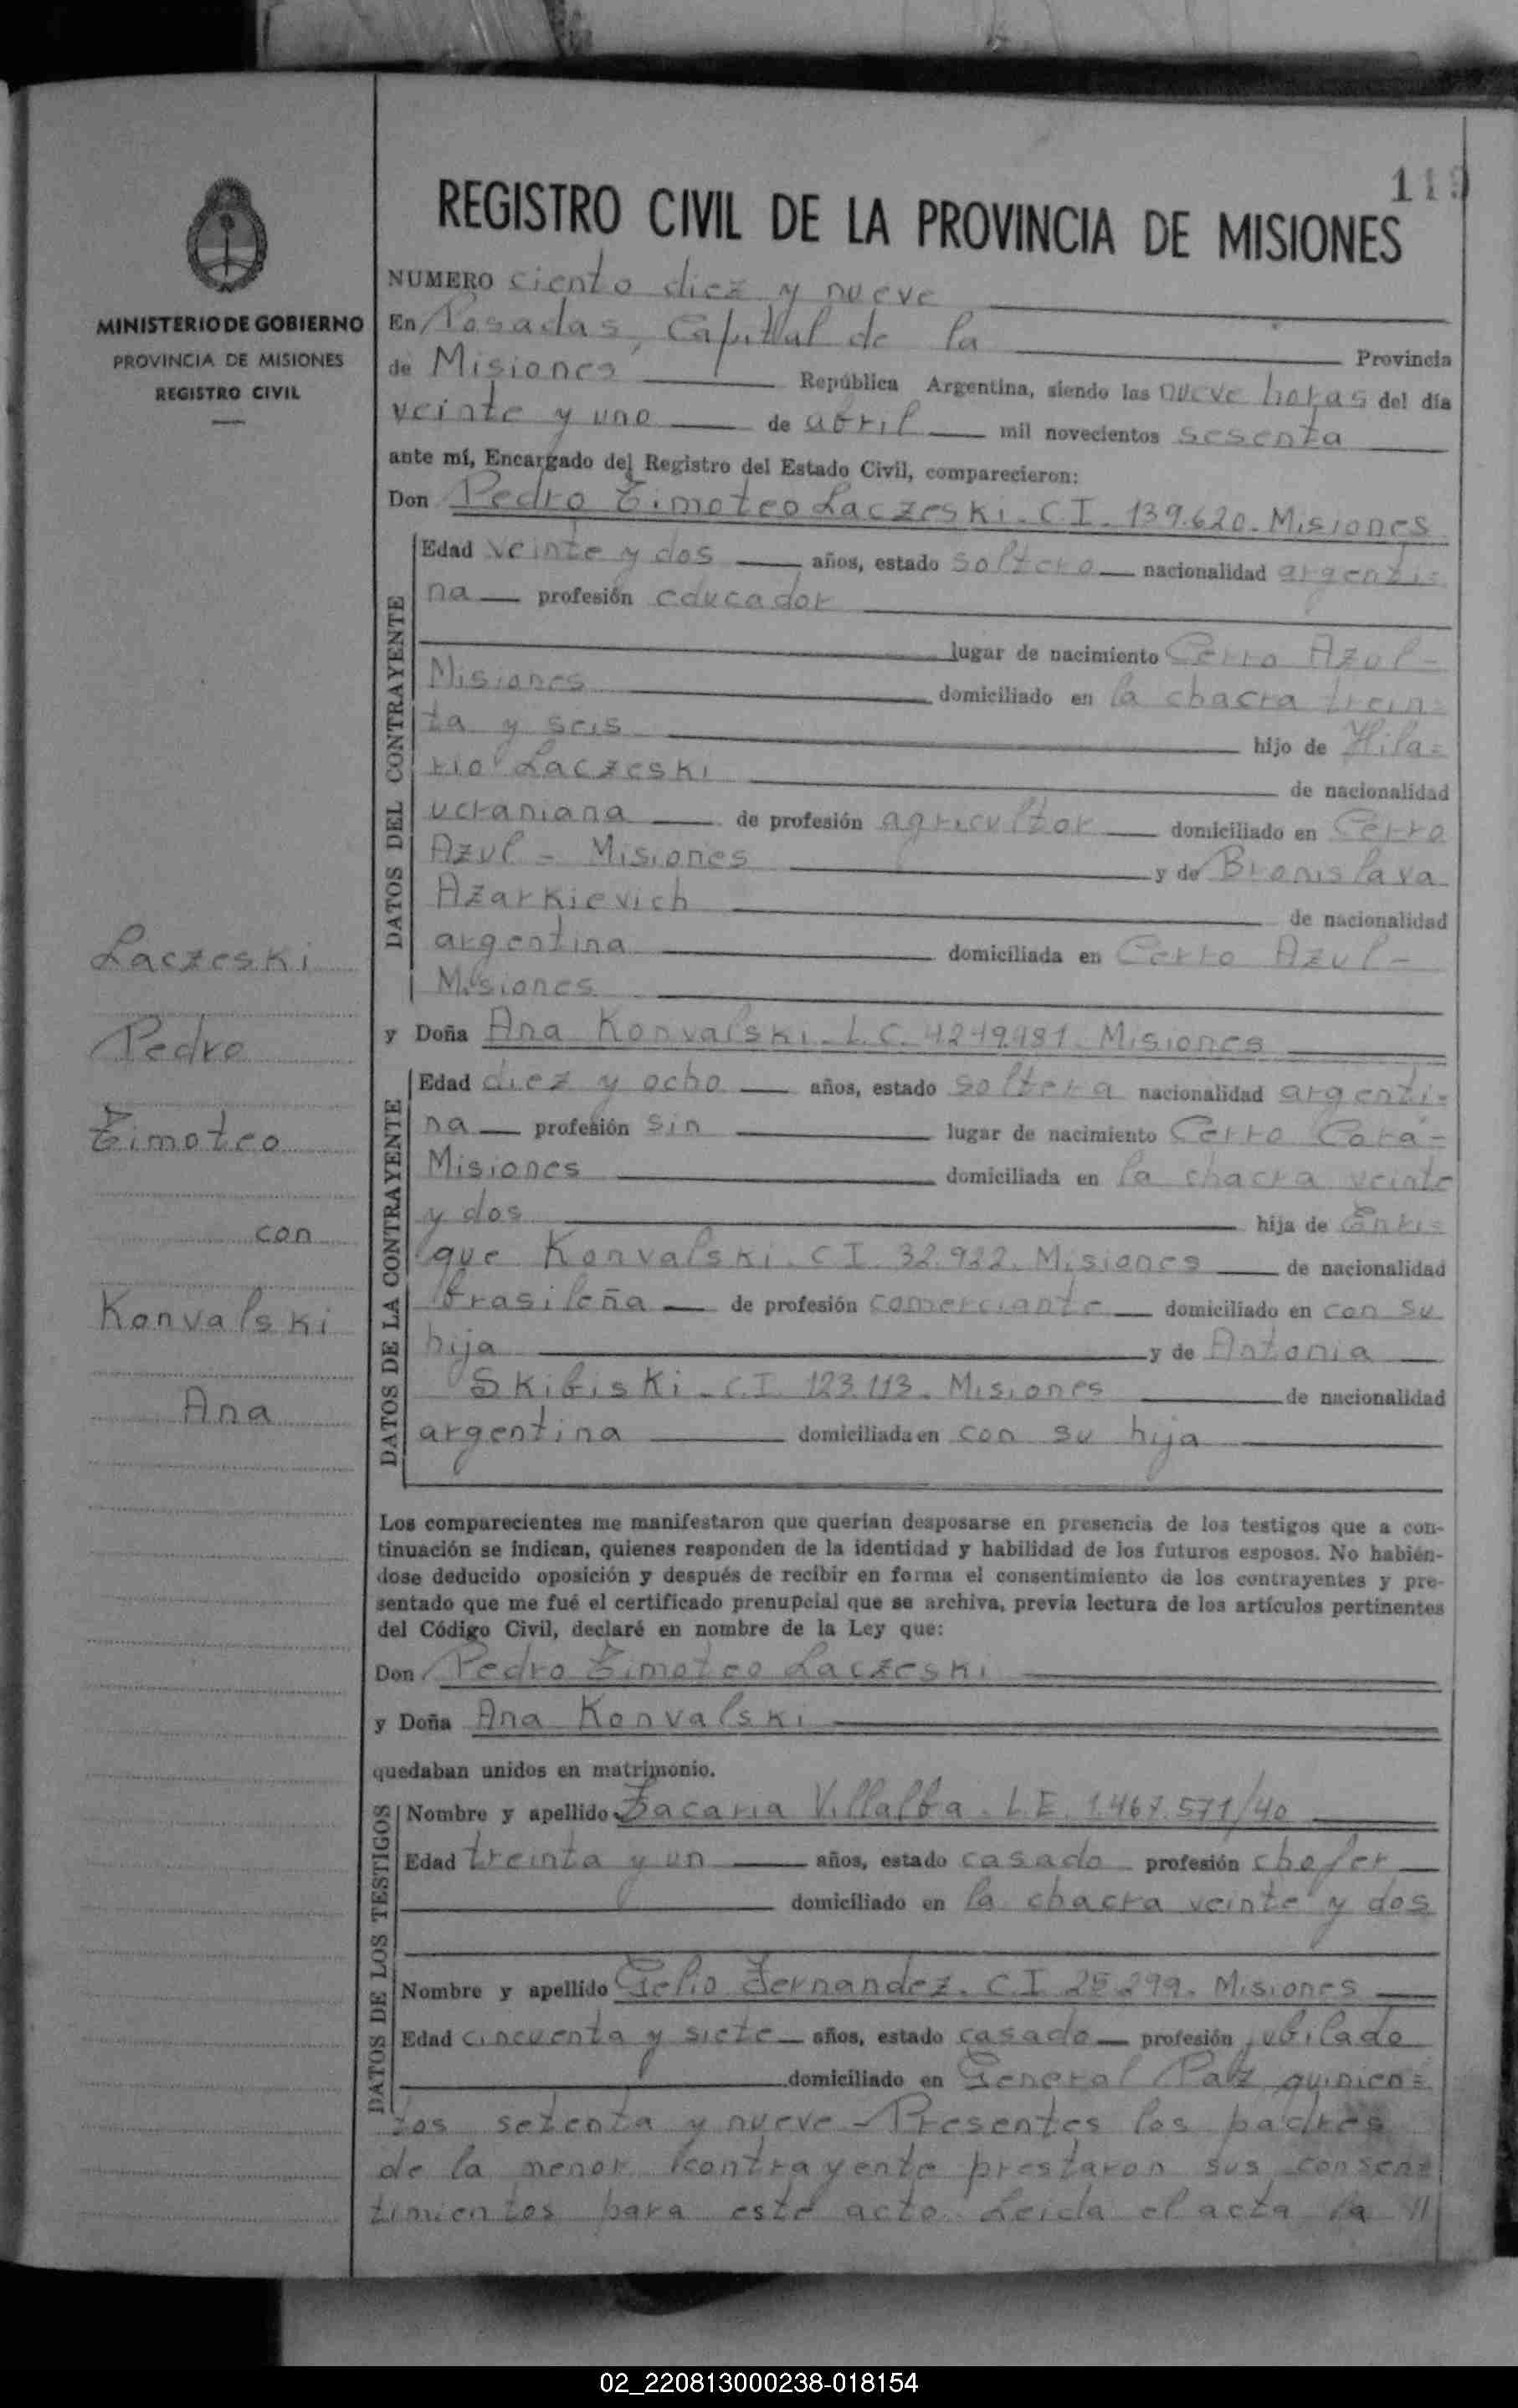 119
REGISTRO CIVIL DE LA PROVINCIA DE MISIONES
MINISTERIO DE GOBIERNO
PROVINCIA DE MISIONES
REGISTRO CIVIL
Laczeski
Pedro
Timoteo
con
Konvalski
Ana
NUMERO ciento diez y nueve
En Posadas, Capital de la Provincia
de Misiones República Argentina, siendo las nueve horas del día
veinte y uno de abril mil novecientos sesenta
ante mí, Encargado del Registro del Estado Civil, comparecieron:
Don Pedro Timoteo Laczeski. C.I. 139.620. Misiones
DATOS DEL CONTRAYENTE
Edad veinte y dos años, estado soltero nacionalidad argenti=
na profesión educador
lugar de nacimiento Cerro Azul-
Misiones domiciliado en la chacra trein=
ta y seis hijo de Hila=
rio Laczeski de nacionalidad
ucraniana de profesión agricultor domiciliado en Cerro
Azul - Misiones y de Bronislava
Azarkievich de nacionalidad
argentina domiciliada en Cerro Azul-
Misiones
y Doña Ana Konvalski. L.C. 4.219.981. Misiones
DATOS DE LA CONTRAYENTE
Edad diez y ocho años, estado soltera nacionalidad argenti=
na profesión sin lugar de nacimiento Cerro Corá-
Misiones domiciliada en la chacra veinte
y dos hija de Enri=
que Konvalski. C.I. 32.922. Misiones de nacionalidad
brasileña de profesión comerciante domiciliado en con su
hija y de Antonia
Skibiski. C.I. 123.113. Misiones de nacionalidad
argentina domiciliada en con su hija
Los comparecientes me manifestaron que querían desposarse en presencia de los testigos que a con-
tinuación se indican, quienes responden de la identidad y habilidad de los futuros esposos. No habién-
dose deducido oposición y después de recibir en forma el consentimiento de los contrayentes y pre-
sentado que me fué el certificado prenupcial que se archiva, previa lectura de los artículos pertinentes
del Código Civil, declaré en nombre de la Ley que:
Don Pedro Timoteo Laczeski
y Doña Ana Konvalski
quedaban unidos en matrimonio.
DATOS DE LOS TESTIGOS
Nombre y apellido Zacaria Villalba. L.E. 1.467.571/40
Edad treinta y un años, estado casado profesión chofer
domiciliado en la chacra veinte y dos
Nombre y apellido Celio Fernandez. C.I. 25.299. Misiones
Edad cincuenta y siete años, estado casado profesión jubilado
domiciliado en General Paz quinien=
tos setenta y nueve - Presentes los padres
de la menor contrayente prestaron sus consen=
timientos para este acto. Leida el acta la //
02_220813000238-018154